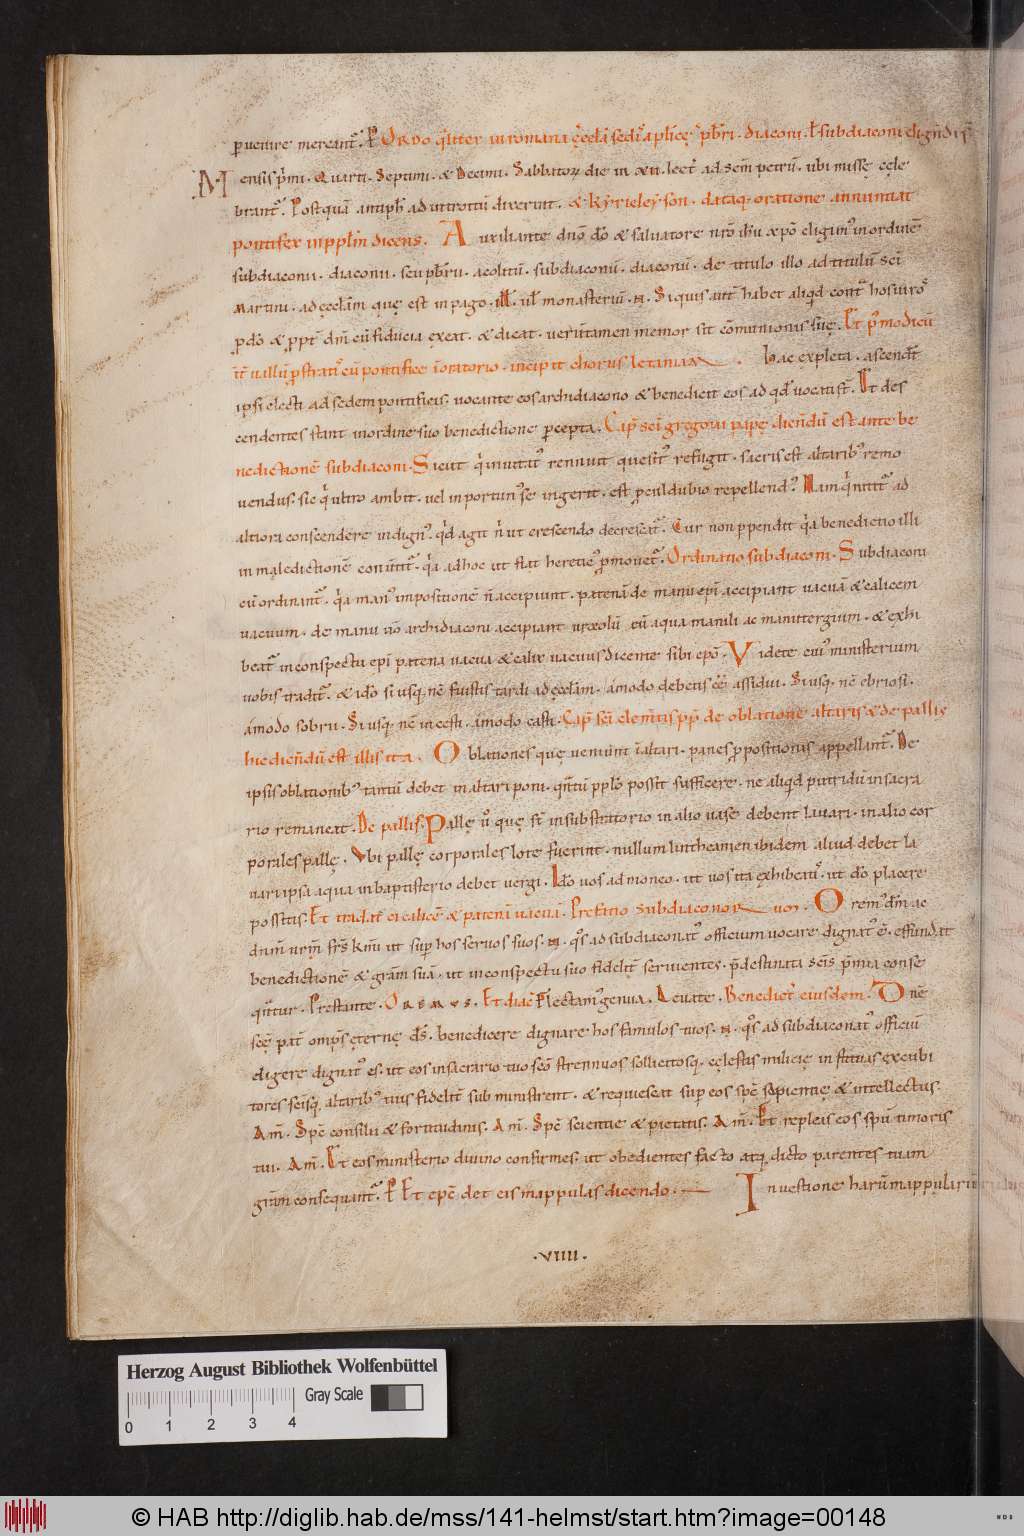 puenire mereant᷒. P Ordo qlit̄ter in romana ęcclā sedi᷒ aplicę pbri. diaconi. ł subdiaconi eligndi s̄
Mensis pmi. Quarti. Septimi. & Decimi. Sabbatoꝝ die in xii. lect ad scm petrū. ubi missę cęle
brant᷒. Postquā antiph ad introitū dixerint. & kyrieleyson. dataq; oratione annuntiat
pontifex in pplm dicens. Auxiliante dno do & saluatore nro ihu xpo eligim᷒ in ordinē
subdiaconii. diaconii. seu pbrii. acolitū. subdiaconū. diaconū. de titulo illo ad titulū sci
Martini. ad ęcclam quę est in pago. ill. ul monasteriū. N. Siquis aut habet aliqd contᷓ hos uiro᷒
p do & ppt dm cū fiducia exeat. & dicat. ueruntamen memor sit cōmunionis suę. Et p modicū
int uallū pstrati᷒ cū pontifice in oratorio. incipit chorus letaniaꝝ. hac expleta. ascendt
ipsi electi ad sedem pontificis. uocante eos archidiacono & benedicit eos ad qd uocati st. Et des
cendentes stant in ordine suo benedictione pcepta. Cap sci gregorii papę dicndū est ante be
nedictionē subdiaconi. Sicut q inuitat᷒ rennuit quesit᷒ refugit. sacris est altarib᷒ remo
uendus. sic q ultro ambit. uel inportun᷒ se ingerit. est pculdubio repellend᷒. Nam q nitit᷒ ad
altiora conscendere indign᷒. qd agit n ut crescendo decrescat᷒. Cur non ppendit qa benedictio illi
in maledictionē conuertit᷒. qa ad hoc ut fiat heretic᷒ pmouet᷒. Ordinatio subdiaconi. Subdiaconi
cū ordinant᷒. qa man᷒ impositionē n accipiunt. patenā de manu epi accipiant uacuā & calicem
uacuum. de manu uo archidiaconi accipiant urceolū cū aqua manili ac manutergium. & exhi
beat᷒ in conspectu epi patena uacua & calix uacuus dicente sibi epo. Videte cui᷒ ministerium
uobis tradit᷒. & ido si usq; nc fuistis tardi ad ęcclam. amodo debetis ęē assidui. Si usq; nc ebriosi.
amodo sobrii. Si usq; nc incesti. amodo casti. Cap sci clemtis pp de oblatione altaris & de pallis
hic dicndū est illis ita. Oblationes quę ueniunt in altari. panes ppositionis appellant᷒. De
ipsis oblationib᷒ tantū debet in altari poni. qntū pplo possit sufficere. ne aliqd putridū in sacra
rio remaneat. De pallis. Pallę u quę st in substratorio in alio uase debent lauari. in alio cor
porales pallę. Vbi pallę corporales lotę fuerint. nullum linthcamen ibidem aliud debet la
uari ipsa aqua in baptisterio debet uergi. Ido uos admoneo. ut uos ita exhibeatis. ut do placere
possitis. Et tradat ei calicē & patenā uacuā. Prefatio subdiaconoꝝ uoꝝ. Orem᷒ dm ac
dnm nrm frs kmi ut sup hos seruos suos. N. qs ad subdiaconat᷒ officium uocare dignat᷒ ē. effundat
benedictionē & gram suā. ut in conspectu suo fidelit seruientes. pdestinata scis pmia conse
quntur. Prestante. OREMVS. Et diac Flectam᷒ genua. Leuate. Benedict eiusdem. Dnē
scę pat omps ęternę ds. benedicere dignare hos famulos tuos. N. qs ad subdiaconat᷒ officiū
eligere dignat᷒ es. ut eos in sacrario tuo sco strennuos sollicitosq; cęlestis militię instituas excubi
tores scisq; altarib᷒ tuis fidelit subministrent. & requiescat sup eos spc sapientię & intellectus.
Am. Spc consilii & fortitudinis. Am. Spc scientię & pietatis. Am. Et repleas eos spu timoris
tui. Am. Et eos ministerio diuino confirmes. ut obedientes facto atq; dicto parentes tuam
gram consequant᷒. P Et epc det eis mappulas dicendo. In uestione harū mappulari
.VIIII.
Herzog August Bibliothek Wolfenbüttel
0 1 2 3 4 Gray Scale
© HAB http://diglib.hab.de/mss/141-helmst/start.htm?image=00148